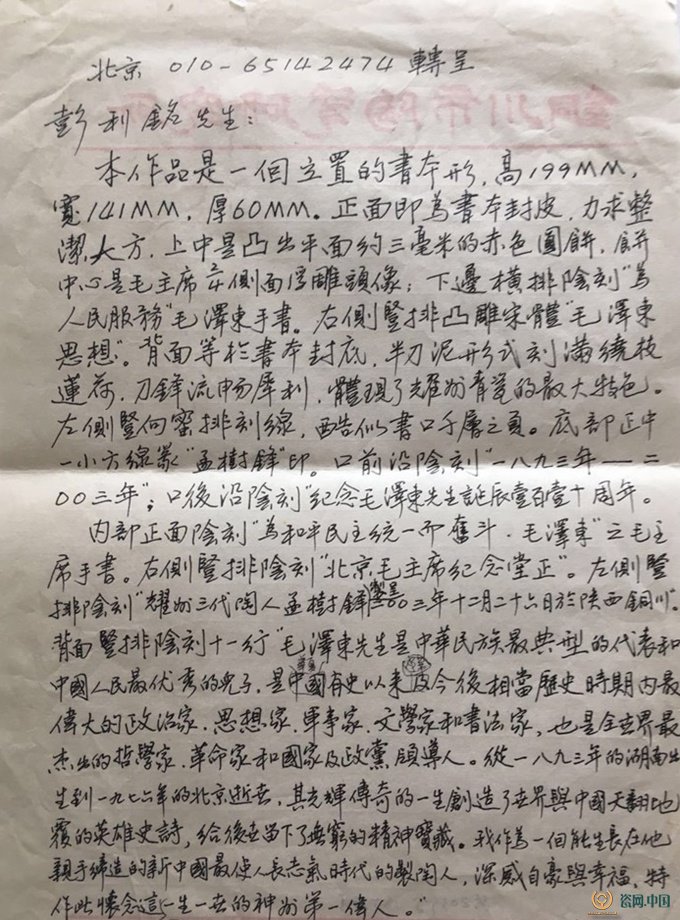 北京 010-65142474 轉呈
彭利銘先生：
本作品是一個立置的書本形，高199MM，
寬141MM，厚60MM。正面即為書本封皮，力求整
潔，大方，上中是凸出平面約三毫米的赤色圓餅，餅
中心是毛主席側面浮雕頭像；下邊橫排陰刻"為
人民服務"毛澤東手書。右側豎排凸雕宋體"毛澤東
思想"。背面等於書本封底，半刀泥形式刻滿繞枝
蓮荷，刀鋒流暢犀利，體現了耀州青瓷的最大特色。
左側豎向密排刻線，酷似書口千層之頁。底部正中
一小方線篆"孟樹鋒"印。口前沿陰刻"一八九三年——二
00三年"；口後沿陰刻"紀念毛澤東先生誕辰壹百壹十周年。
內部正面陰刻"為和平民主統一而奮斗·毛澤東"之毛主
席手書。右側豎排陰刻"北京毛主席紀念堂正"。左側豎
排陰刻"耀州三代陶人孟樹鋒製呈二00三年十二月二十六日於陝西銅川"。
背面豎排陰刻十一行"毛澤東先生是中華民族最典型的代表和
中國人民最优秀的兒子，是中國有史以來及今後相當歷史時期內最
偉大的政治家，思想家，軍事家，文學家和書法家，也是全世界最
杰出的哲學家，革命家和國家及政黨領導人。從一八九三年的湖南出
生到一九七六年的北京逝世，其光輝傳奇的一生創造了世界與中國天翻地
覆的英雄史詩，給後世留下了無窮的精神寶藏。我作為一個能生長在他
親手締造的新中國最使人長志氣時代的製陶人，深感自豪與幸福，特
作此懷念這一生一世的神州第一偉人。"
銅川市陶瓷研究所
盗网.中国